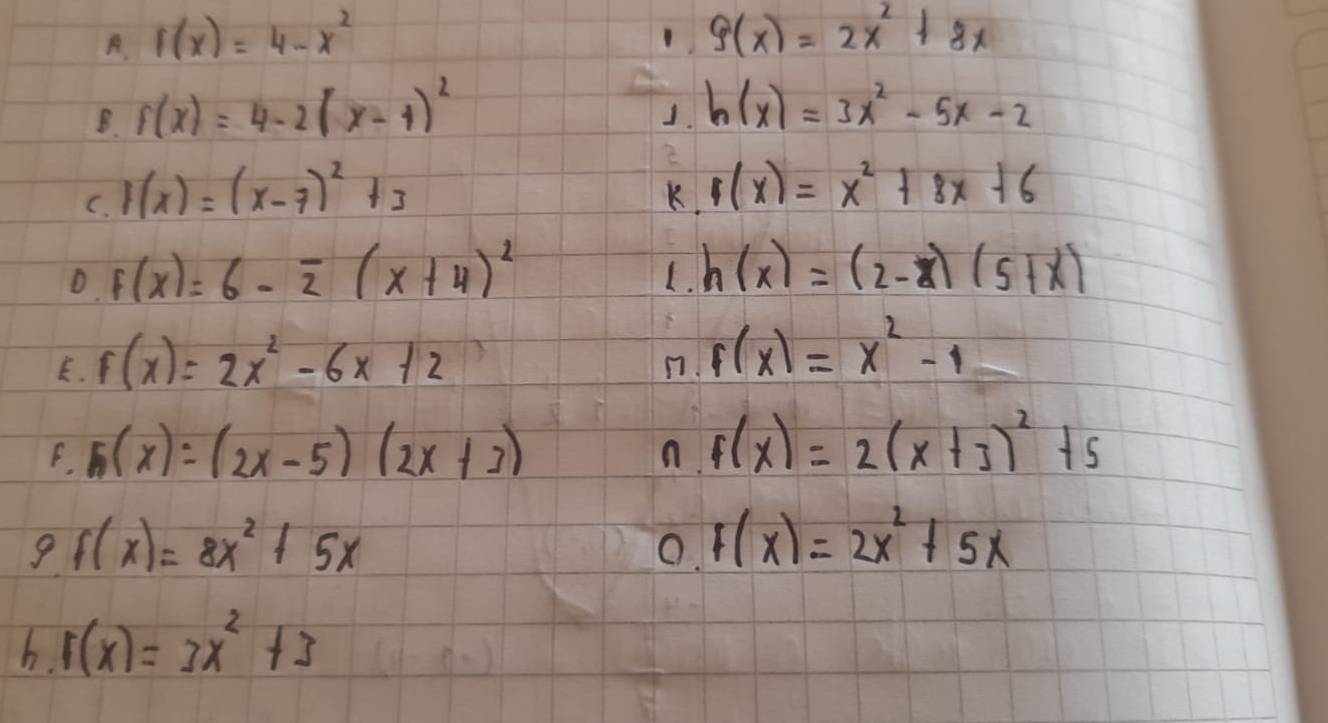 A. f(x) = 4 - x²
B. f(x) = 4 - 2(x - 1)²
C. f(x) = (x - 7)² + 3
D. f(x) = 6 - 2̅ (x + 4)²
E. f(x) = 2x² - 6x + 2
F. h(x) = (2x - 5) (2x + 3)
g. f(x) = 8x² + 5x
h. f(x) = 3x² + 3
I. g(x) = 2x² + 8x
J. h(x) = 3x² - 5x - 2
K. f(x) = x² + 8x + 6
L. h(x) = (2 - x) (5 + x)
M. f(x) = x² - 1
n. f(x) = 2(x + 3)² + 5
O. f(x) = 2x² + 5x